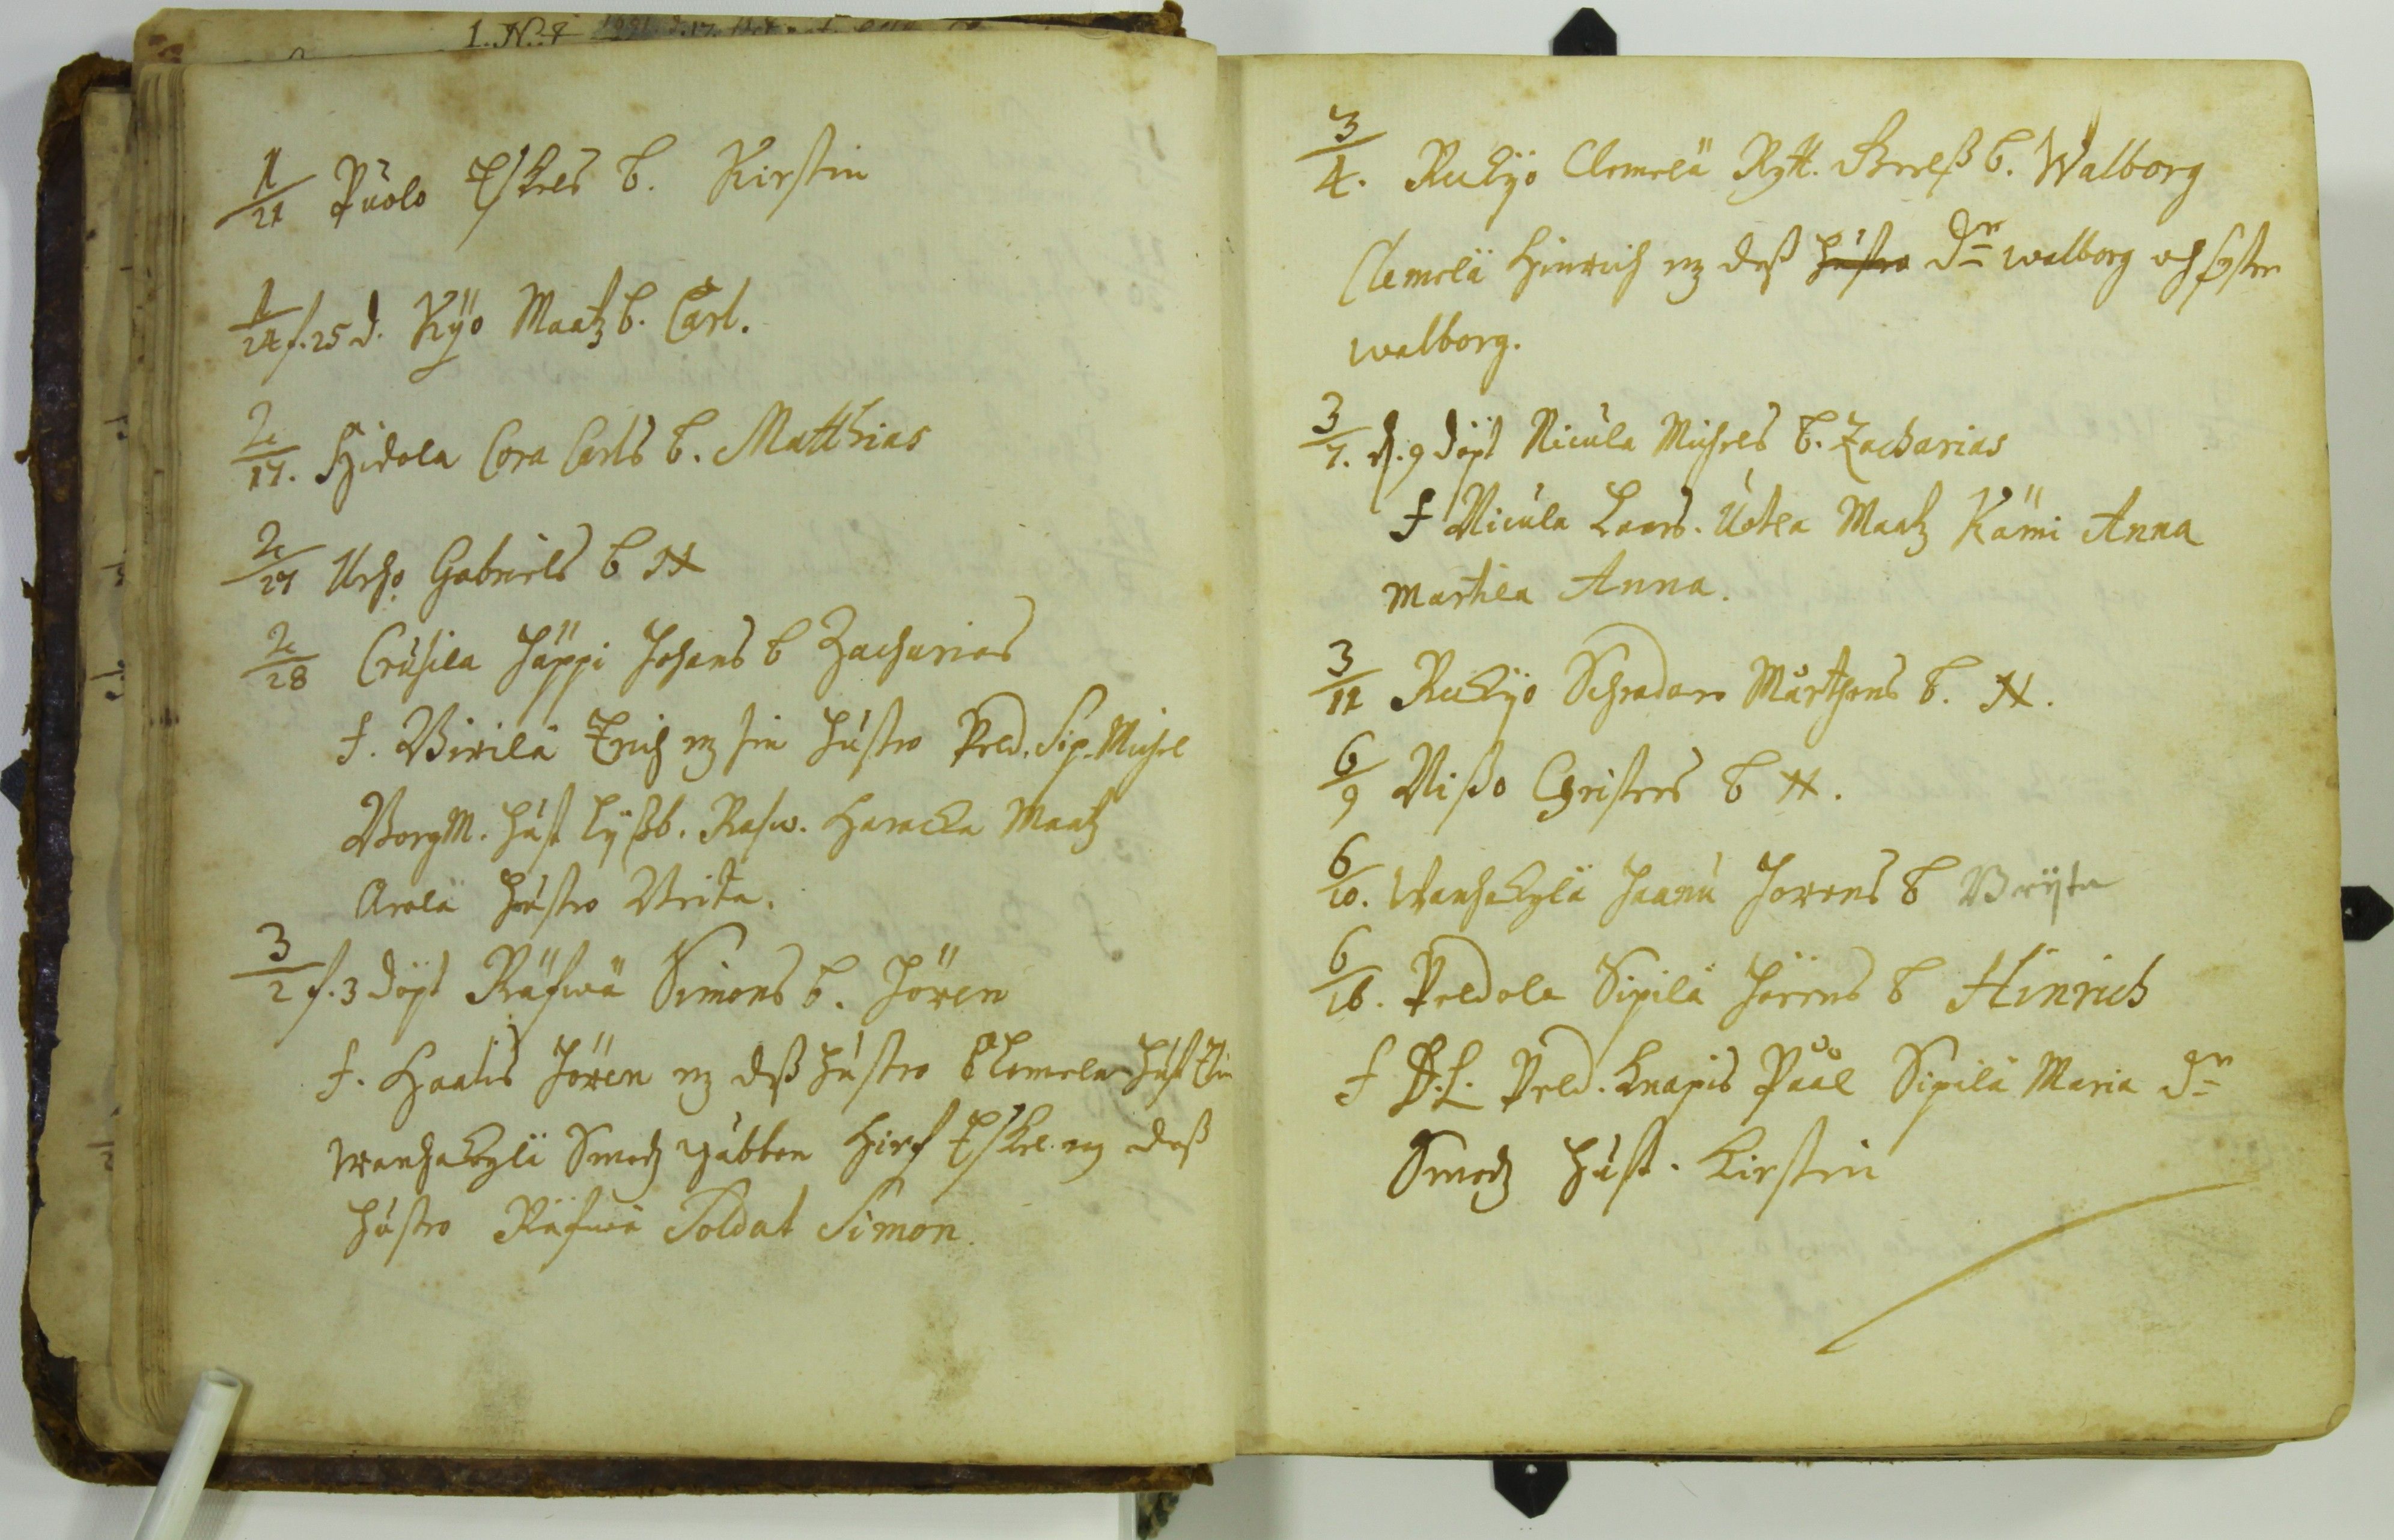 1/21 Puolo Eskels b. Kirstin
1/24 f. 25 d. Kÿo Maatz b. Carl.
2/17. Hidola Cora Carls b. Matthias
2/27 Urho Gabriels b N
2/28 Crusila Jäppi Johans b Zacharias
f. Wirilä Erich mz sin hustro Pred. Sip. Michel
BorgM. hust Lÿßb. Rasw. Haracka Maatz
Arola hustro Brita.
3/2 f. 3 döpt Räfwä Simons b. Jören
f. Haatis Jören mz deß hustro Clemela hust
Wanhakylä Smedz gubben Hirf Eskel mz deß
hustro Räfwä Soldat Simon.
3/4. Ruskÿo Clemelä Rytt. Grelß b. Walborg
Clemelä Hinrich mz deß hustro dr walborg och syster
walborg.
3/7. d. 9 döpt Nicula Michels b. Zacharias
f Nicula Laars. Uotla Maatz Kämi Anna
Martila Anna.
3/11 Ruskÿo Schradars Mårthens b. N.
6/9 Nißo Christers b N.
6/10. Wanhakylä Jaanu Jorens b Brÿta
6/16. Predola Sipilä Jörens b Hinrich
f Pred. Knapis Påål Sipilä Maria dr
Smedz hust. Kirstin